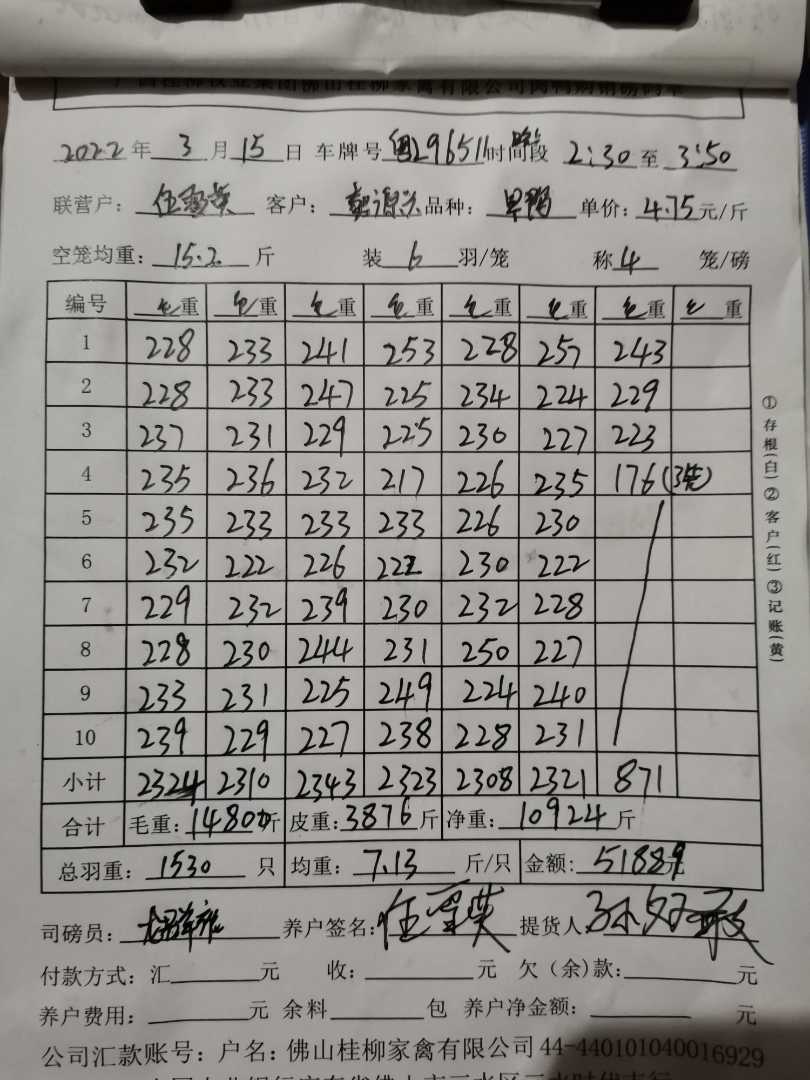 2022年 3月15日 车牌号 粤J29651 时间段 2:30至3:50
联营户: 任 英 客户: 源兴 品种: 旱鸭 单价: 4.75元/斤
空笼均重: 15.2 斤 装 6 羽/笼 称 4 笼/磅
编号 毛重 毛重 毛重 毛重 毛重 毛重 毛重 毛重
1 228 233 241 253 228 257 243
2 228 233 247 225 234 224 229
3 237 231 229 225 230 227 223
4 235 236 232 217 226 235 176 (3笼)
5 235 233 233 233 226 230
6 232 222 226 222 230 222
7 229 232 239 230 232 228
8 228 230 244 231 250 227
9 233 231 225 249 224 240
10 239 229 227 238 228 231
小计 2324 2310 2343 2323 2308 2321 871
合计 毛重: 14800斤 皮重: 3876斤 净重: 10924斤
总羽重: 1530 只 均重: 7.13 斤/只 金额: 51889元
司磅员: 养户签名: 任 英 提货人: 孙
付款方式: 汇 元 收: 元 欠(余)款: 元
养户费用: 元 余料 包 养户净金额: 元
公司汇款账号: 户名: 佛山桂柳家禽有限公司 44-440101040016929
①存根(白)②客户(红)③记账(黄)